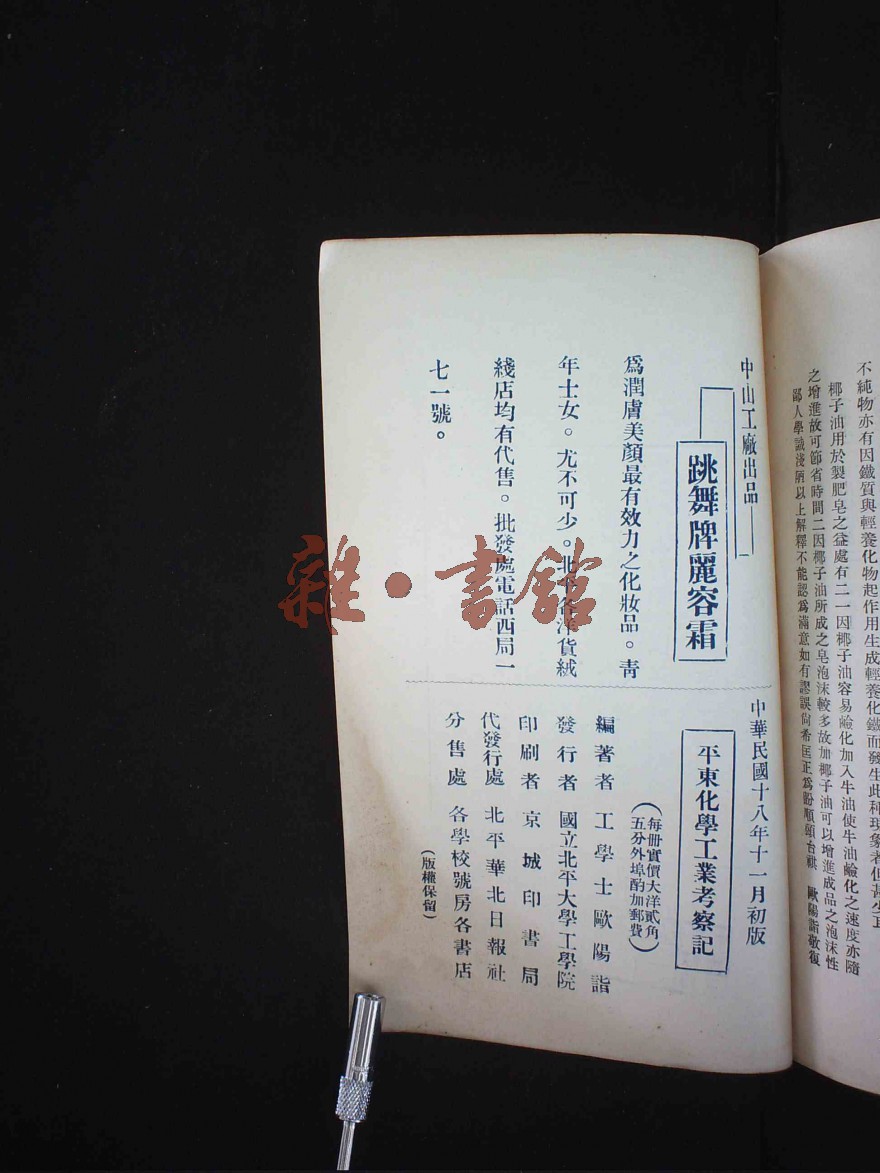 不純物亦有因鐵質與輕養化物起作用生成輕養化鐵而發生此種現象者但甚少耳
椰子油用於製肥皂之益處有二一因椰子油容易鹼化加入牛油使牛油鹼化之速度亦隨
之增進故可節省時間二因椰子油所成之皂泡沫較多故加椰子油可以增進成品之泡沫性
鄙人學識淺陋以上解釋不能認爲滿意如有謬誤尚希匡正爲盼順頌台祺 歐陽詣敬復
中山工廠出品
跳舞牌麗容霜
爲潤膚美顏最有效力之化妝品。靑
年士女。尤不可少。北平各洋貨絨
綫店均有代售。批發處電話西局一
七一號。
中華民國十八年十一月初版
平東化學工業考察記
(每冊實價大洋貳角
五分外埠酌加郵費)
編著者 工學士歐陽詣
發行者 國立北平大學工學院
印刷者 京城印書局
代發行處 北平華北日報社
分售處 各學校號房各書店
(版權保留)
雜·書館